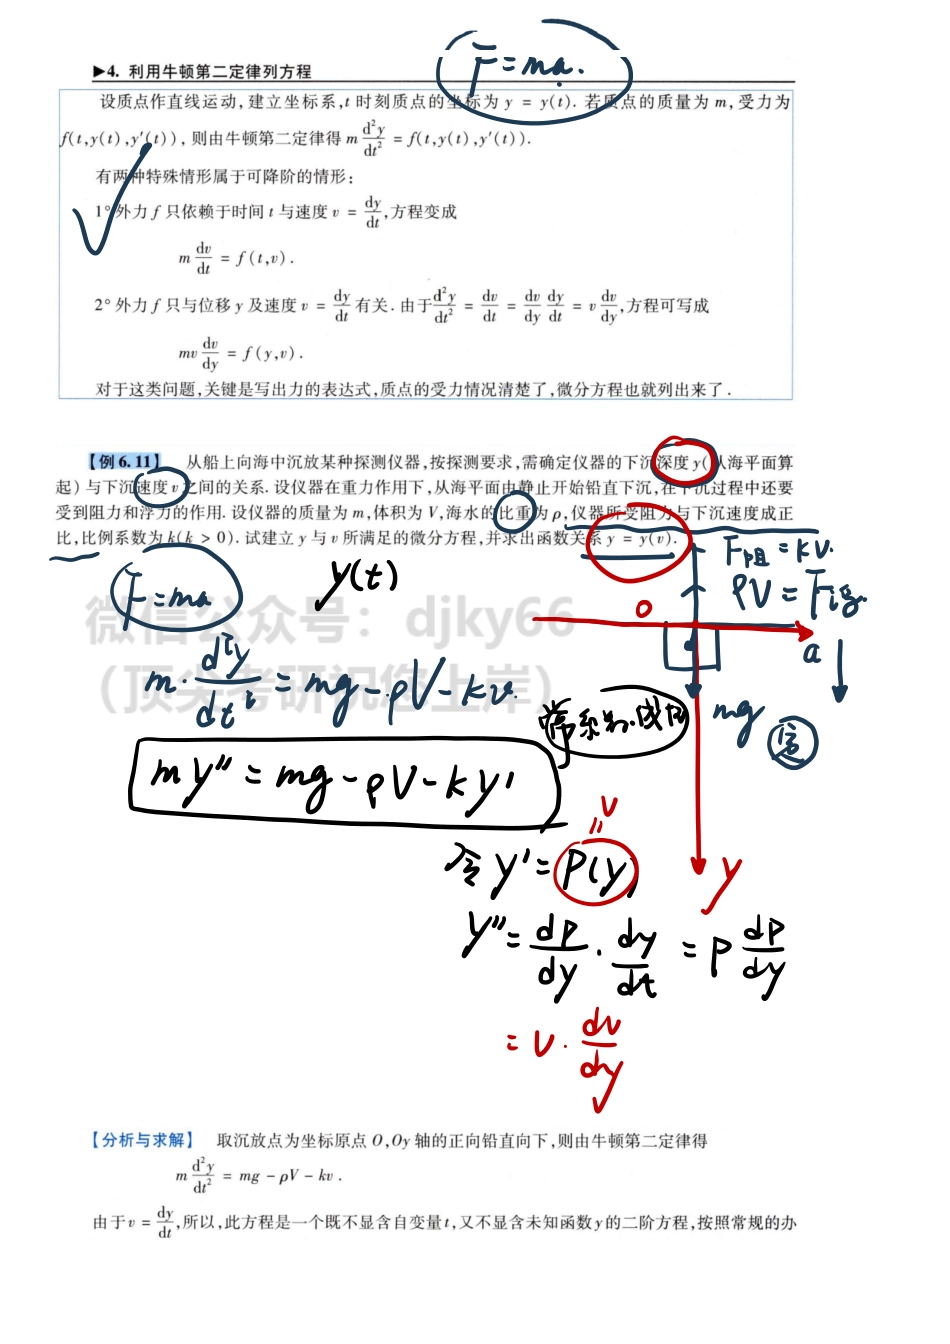 ▶4. 利用牛顿第二定律列方程
F=ma.
设质点作直线运动,建立坐标系,t 时刻质点的坐标为 y = y(t). 若质点的质量为 m,受力为
f(t,y(t),y′(t)),则由牛顿第二定律得 m d²y/dt² = f(t,y(t),y′(t)).
有两种特殊情形属于可降阶的情形:
1° 外力 f 只依赖于时间 t 与速度 v = dy/dt,方程变成
m dv/dt = f(t,v).
2° 外力 f 只与位移 y 及速度 v = dy/dt 有关. 由于 d²y/dt² = dv/dt = dv/dy dy/dt = v dv/dy,方程可写成
mv dv/dy = f(y,v).
对于这类问题,关键是写出力的表达式,质点的受力情况清楚了,微分方程也就列出来了.
【例 6.11】 从船上向海中沉放某种探测仪器,按探测要求,需确定仪器的下沉深度 y(从海平面算
起)与下沉速度 v 之间的关系. 设仪器在重力作用下,从海平面由静止开始铅直下沉,在下沉过程中还要
受到阻力和浮力的作用. 设仪器的质量为 m,体积为 V,海水的比重为 ρ,仪器所受阻力与下沉速度成正
比,比例系数为 k(k > 0). 试建立 y 与 v 所满足的微分方程,并求出函数关系 y = y(v).
F阻=kv.
y(t)
F=ma
ρV=F浮.
微信公众号：djky66
O
a
(顶尖考研祝您上岸)
m·d²y/dt²=mg-ρV-kv.
mg
my″=mg-ρV-ky′
v
=
令y′=P(y)
y
y″=dP/dy·dy/dt=P dP/dy
=v·dv/dy
【分析与求解】 取沉放点为坐标原点 O,Oy 轴的正向铅直向下,则由牛顿第二定律得
m d²y/dt² = mg − ρV − kv.
由于 v = dy/dt,所以,此方程是一个既不显含自变量 t,又不显含未知函数 y 的二阶方程,按照常规的办